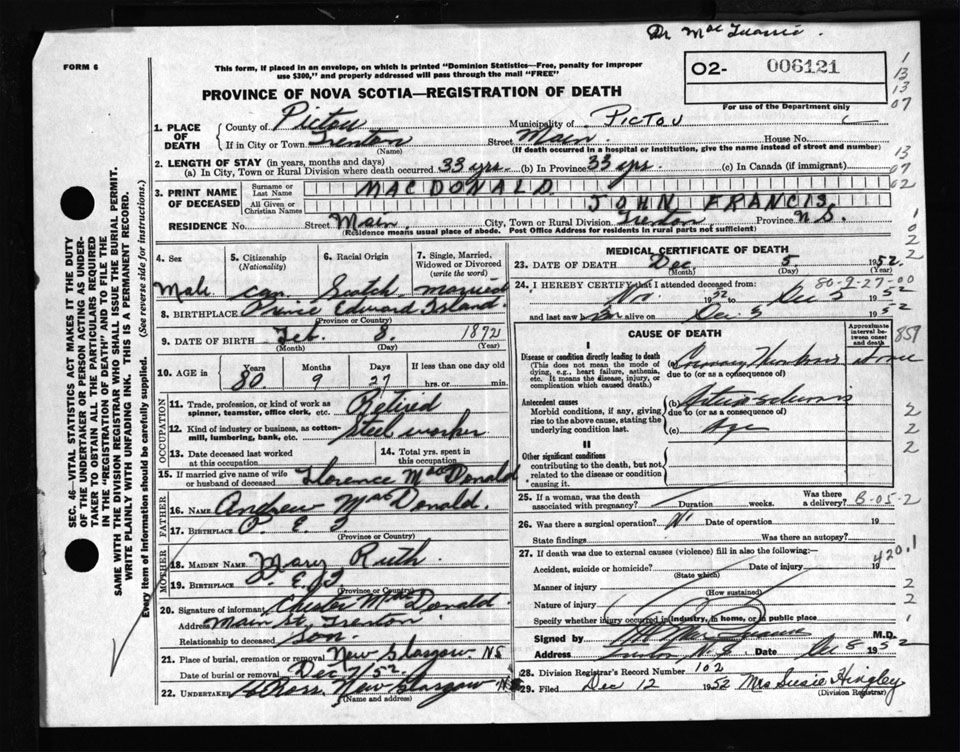 Dr Mac
FORM 6
This form, if placed in an envelope, on which is printed "Dominion Statistics—Free, penalty for improper
use $300," and properly addressed will pass through the mail "FREE"
O2- 006121
For use of the Department only
PROVINCE OF NOVA SCOTIA—REGISTRATION OF DEATH
1. PLACE OF DEATH
County of Pictou Municipality of PICTOU
If in City or Town Trenton (Name) Street Main House No.
(If death occurred in a hospital or institution, give the name instead of street and number)
2. LENGTH OF STAY (in years, months and days)
(a) In City, Town or Rural Division where death occurred 33 yrs. (b) In Province 33 yrs. (c) In Canada (if immigrant)
3. PRINT NAME OF DECEASED
Surname or Last Name MACDONALD
All Given or Christian Names JOHN FRANCIS
RESIDENCE No. Street Main City, Town or Rural Division Trenton Province N.S.
(Residence means usual place of abode. Post Office Address for residents in rural parts not sufficient)
4. Sex Male
5. Citizenship (Nationality) Can
6. Racial Origin Scotch
7. Single, Married, Widowed or Divorced (write the word) married
8. BIRTHPLACE Prince Edward Island
(Province or Country)
9. DATE OF BIRTH Feb. 8, 1872
(Month) (Day) (Year)
10. AGE in Years Months Days If less than one day old
80 9 27 hrs. or min.
OCCUPATION
11. Trade, profession, or kind of work as spinner, teamster, office clerk, etc. Retired
12. Kind of industry or business, as cotton-mill, lumbering, bank, etc. Steel worker
13. Date deceased last worked at this occupation
14. Total yrs. spent in this occupation
15. If married give name of wife or husband of deceased Florence MacDonald
FATHER
16. NAME Andrew MacDonald.
17. BIRTHPLACE P.E.I
(Province or Country)
MOTHER
18. MAIDEN NAME Mary Ruth
19. BIRTHPLACE P.E.I
(Province or Country)
20. Signature of informant Chester MacDonald.
Address Main St. Trenton
Relationship to deceased Son.
21. Place of burial, cremation or removal New Glasgow NS
Date of burial or removal Dec 7/52
22. UNDERTAKER Ross. New Glasgow NS
(Name and address)
MEDICAL CERTIFICATE OF DEATH
23. DATE OF DEATH Dec 5 1952.
(Month) (Day) (Year)
80-9-27-00
24. I HEREBY CERTIFY that I attended deceased from:
Nov. 1952 to Dec 5 1952
and last saw him alive on Dec. 5 1952
CAUSE OF DEATH
Approximate interval between onset and death
859
I
Disease or condition directly leading to death
(This does not mean the mode of dying, e.g., heart failure, asthenia, etc. It means the disease, injury, or complication which caused death.)
(a) Coronary Thrombosis at once
due to (or as a consequence of)
Antecedent causes
Morbid conditions, if any, giving rise to the above cause, stating the underlying condition last.
(b)
due to (or as a consequence of)
(c) Age
II
Other significant conditions contributing to the death, but not related to the disease or condition causing it.
25. If a woman, was the death associated with pregnancy? Duration weeks. Was there a delivery? B-05-2
26. Was there a surgical operation? N Date of operation 19
State findings Was there an autopsy?
27. If death was due to external causes (violence) fill in also the following: 420.1
Accident, suicide or homicide? (State which) Date of injury 19
Manner of injury (How sustained)
Nature of injury
Specify whether injury occurred in industry, in home, or in public place
Signed by M.D.
Address Trenton N.S. Date Dec 8 1952
28. Division Registrar's Record Number 102
29. Filed Dec 12 1952 Mrs Susie Hingley
(Division Registrar)
SEC. 46—VITAL STATISTICS ACT MAKES IT THE DUTY
OF THE UNDERTAKER OR PERSON ACTING AS UNDER-
TAKER TO OBTAIN ALL THE PARTICULARS REQUIRED
IN THE "REGISTRATION OF DEATH" AND TO FILE THE
SAME WITH THE DIVISION REGISTRAR WHO SHALL ISSUE THE BURIAL PERMIT.
WRITE PLAINLY WITH UNFADING INK. THIS IS A PERMANENT RECORD.
Every item of information should be carefully supplied. (See reverse side for instructions.)
1
13
13
07
13
07
02
1
0
2
2
2
2
2
2
2
2